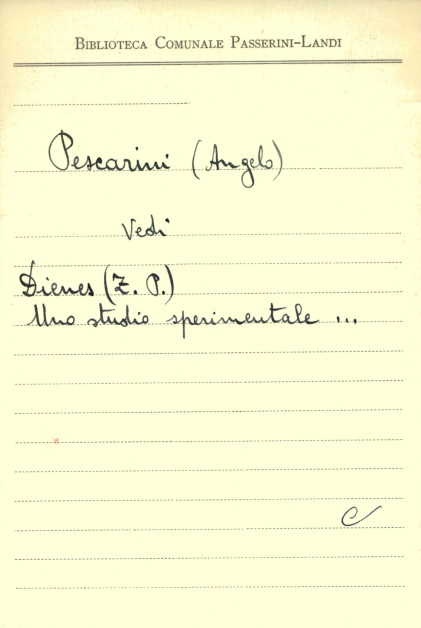 BIBLIOTECA COMUNALE PASSERINI-LANDI
Pescarini (Angelo)
Vedi
Dienes (Z. P.)
Uno studio sperimentale ...
C